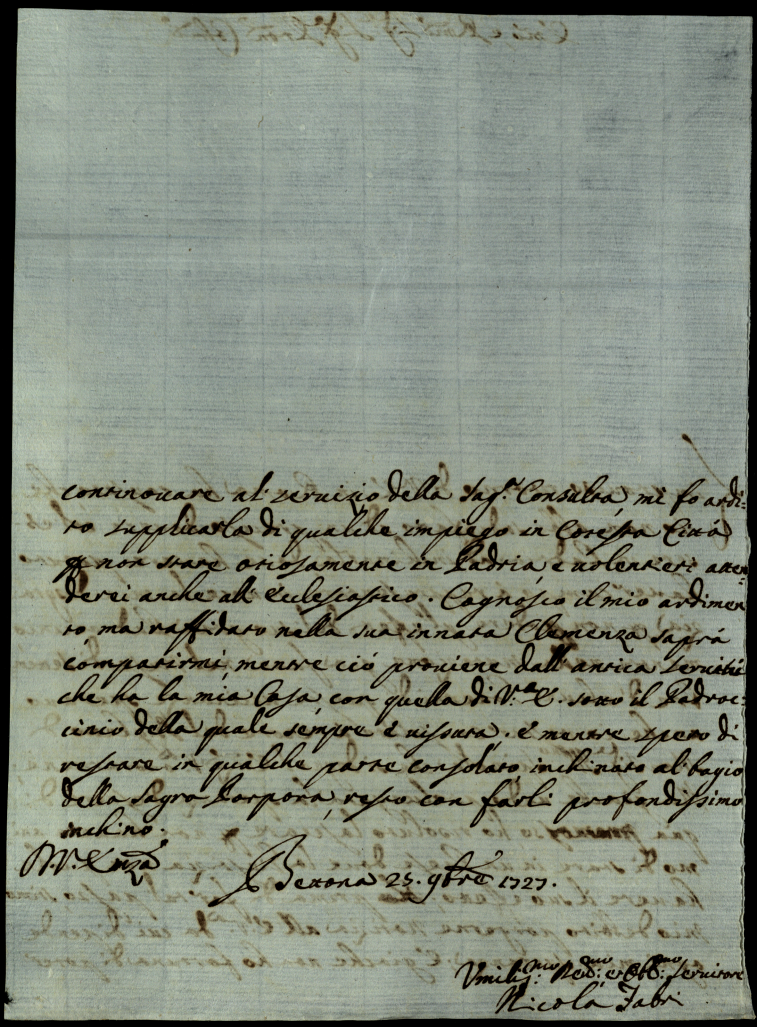 continouare al servizio della Sag.ª Consulta, mi fo ardi-
to supplicarla di qualche impiego in cotesta Città
non stare otiosamente in Padria, e volentieri atten-
derei anche all' Ecclesiastico. Cagnosco il mio ardimen
to, ma raffidato nella sua innata Clemenza saprà
compatirmi, mentre ciò proviene dall' antica servitù
che ha la mia Casa, con quella di V.ª E. sotto il Padroc-
cinio della quale sempre è vissuta. e mentre spero di
restare in qualche parte consolato, inchinato al bagio
della Sagra Porpora, resto con farli profondissimo
inchino.
D.V. Emza
25. 9bre 1727.
Umiliss.mo Dev.mo et Obb.mo Servitore
Nicola Fabri